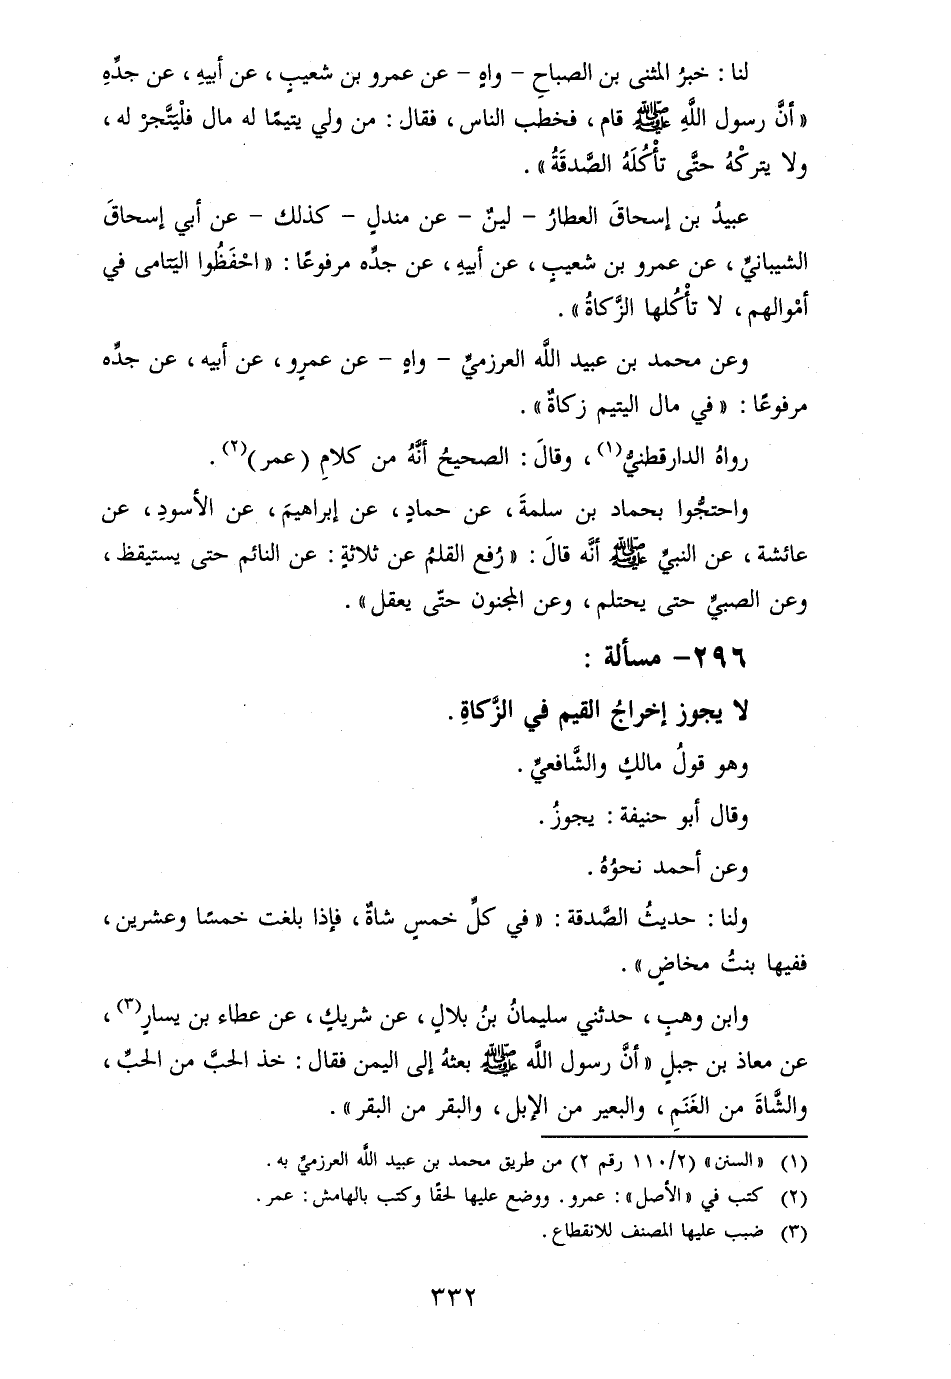 لنا : خبرُ المثنى بن الصباحِ – واهٍ – عن عمرو بن شعيبٍ ، عن أبيهِ ، عن جدِّهِ
« أنَّ رسول اللَّهِ ﷺ قام ، فخطب الناس ، فقال : من ولي يتيمًا له مال فلْيَتَّجرْ له ،
ولا يتركْهُ حتَّى تأْكُلَهُ الصَّدقَةُ » .
عبيدُ بن إسحاقَ العطارُ – لينٌ – عن مندلٍ – كذلك – عن أبي إسحاقَ
الشيبانيِّ ، عن عمرو بن شعيبٍ ، عن أبيهِ ، عن جدِّه مرفوعًا : « احْفَظُوا اليَتامى في
أمْوالهم ، لا تأْكُلها الزَّكاةُ » .
وعن محمد بن عبيد اللَّه العرزميِّ – واهٍ – عن عمرٍو ، عن أبيه ، عن جدِّه
مرفوعًا : « في مال اليتيم زكاةٌ » .
رواهُ الدارقطنيُّ(١) ، وقالَ : الصحيحُ أنَّهُ من كلامِ ( عمر )(٢) .
واحتجُّوا بحماد بن سلمةَ ، عن حمادٍ ، عن إبراهيمَ ، عن الأسودِ ، عن
عائشة ، عن النبيِّ ﷺ أنَّه قالَ : « رُفع القلمُ عن ثلاثةٍ : عن النائم حتى يستيقظ ،
وعن الصبيِّ حتى يحتلم ، وعن المجنون حتّى يعقل » .
٢٩٦- مسألة :
لا يجوز إخراجُ القيم في الزَّكاةِ .
وهو قولُ مالكٍ والشَّافعيِّ .
وقال أبو حنيفة : يجوزُ .
وعن أحمد نحوُهُ .
ولنا : حديثُ الصَّدقة : « في كلِّ خمسٍ شاةٌ ، فإذا بلغت خمسًا وعشرين ،
ففيها بنتُ مخاضٍ » .
وابن وهبٍ ، حدثني سليمانُ بنُ بلالٍ ، عن شريكٍ ، عن عطاء بن يسارٍ(٣) ،
عن معاذ بن جبلٍ « أنَّ رسول اللَّه ﷺ بعثهُ إلى اليمن فقال : خذ الحبَّ من الحبِّ ،
والشَّاةَ من الغَنَمِ ، والبعير من الإبل ، والبقر من البقر » .
(١) « السنن » (٢/ ١١٠ رقم ٢) من طريق محمد بن عبيد اللَّه العرزميِّ به .
(٢) كتب في « الأصل » : عمرو . ووضع عليها لحقًا وكتب بالهامش : عمر .
(٣) ضبب عليها المصنف للانقطاع .
٣٣٢